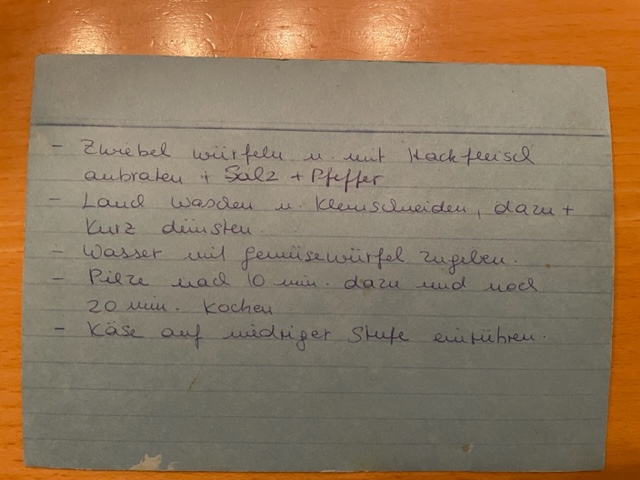 - Zwiebel würfeln u. mit Hackfleisch
anbraten + Salz + Pfeffer
- Lauch waschen u. kleinschneiden, dazu +
kurz dünsten.
- Wasser mit gemüsewürfel zugeben.
- Pilze nach 10 min. dazu und noch
20 min. kochen
- Käse auf niedriger Stufe einrühren.